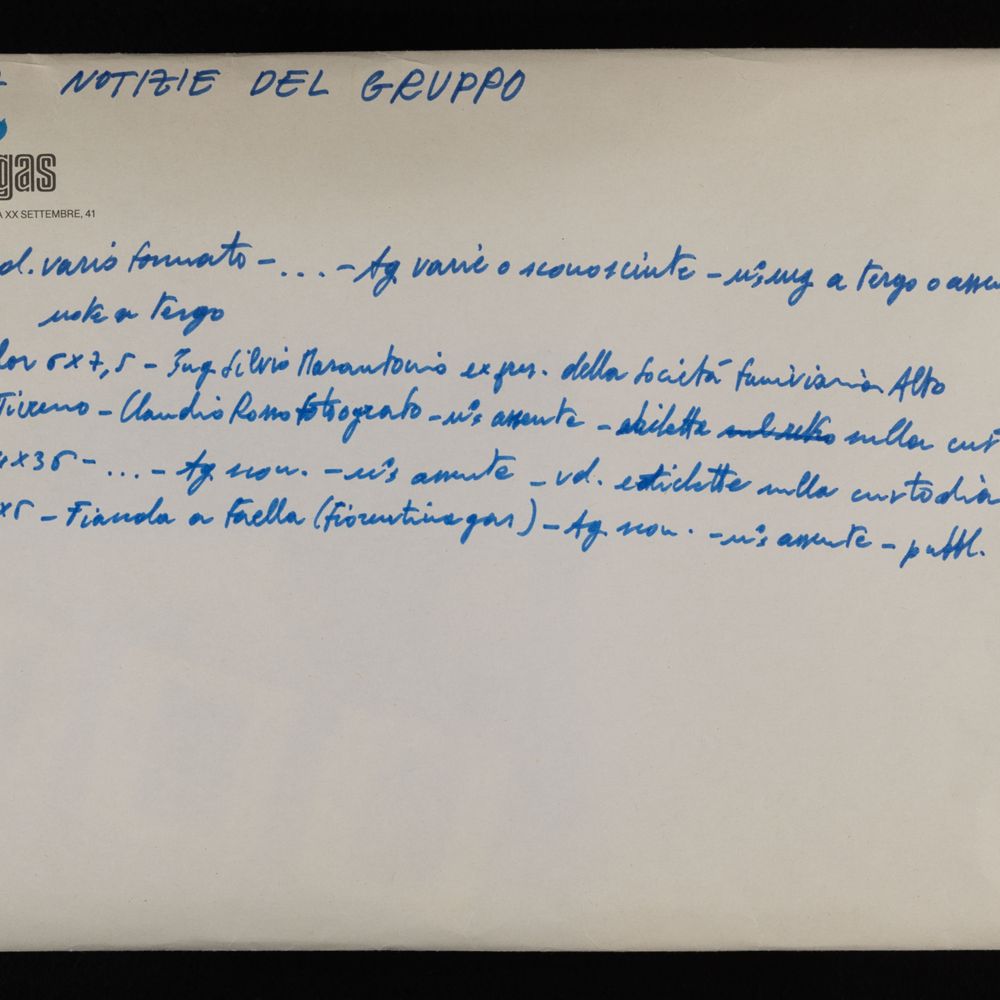 NOTIZIE DEL GRUPPO
gas
A XX SETTEMBRE, 41
d. vario formato - ... - Ag varie o sconosciute - n°i neg a tergo o assen
note a tergo
lor 6x7,5 - Ing. Silvio Marantonio ex pres. della Società funiviaria Alto
Tirreno - Claudio Rosso fotografo - n°i assente - etichetta sulla cus
4x36 - ... - Ag scon. - n°i assente - vd. etichette sulla custodia
x6 - Fiamda a Faella (Fiorentina gas) - Ag scon. - n°i assente - pubbl.